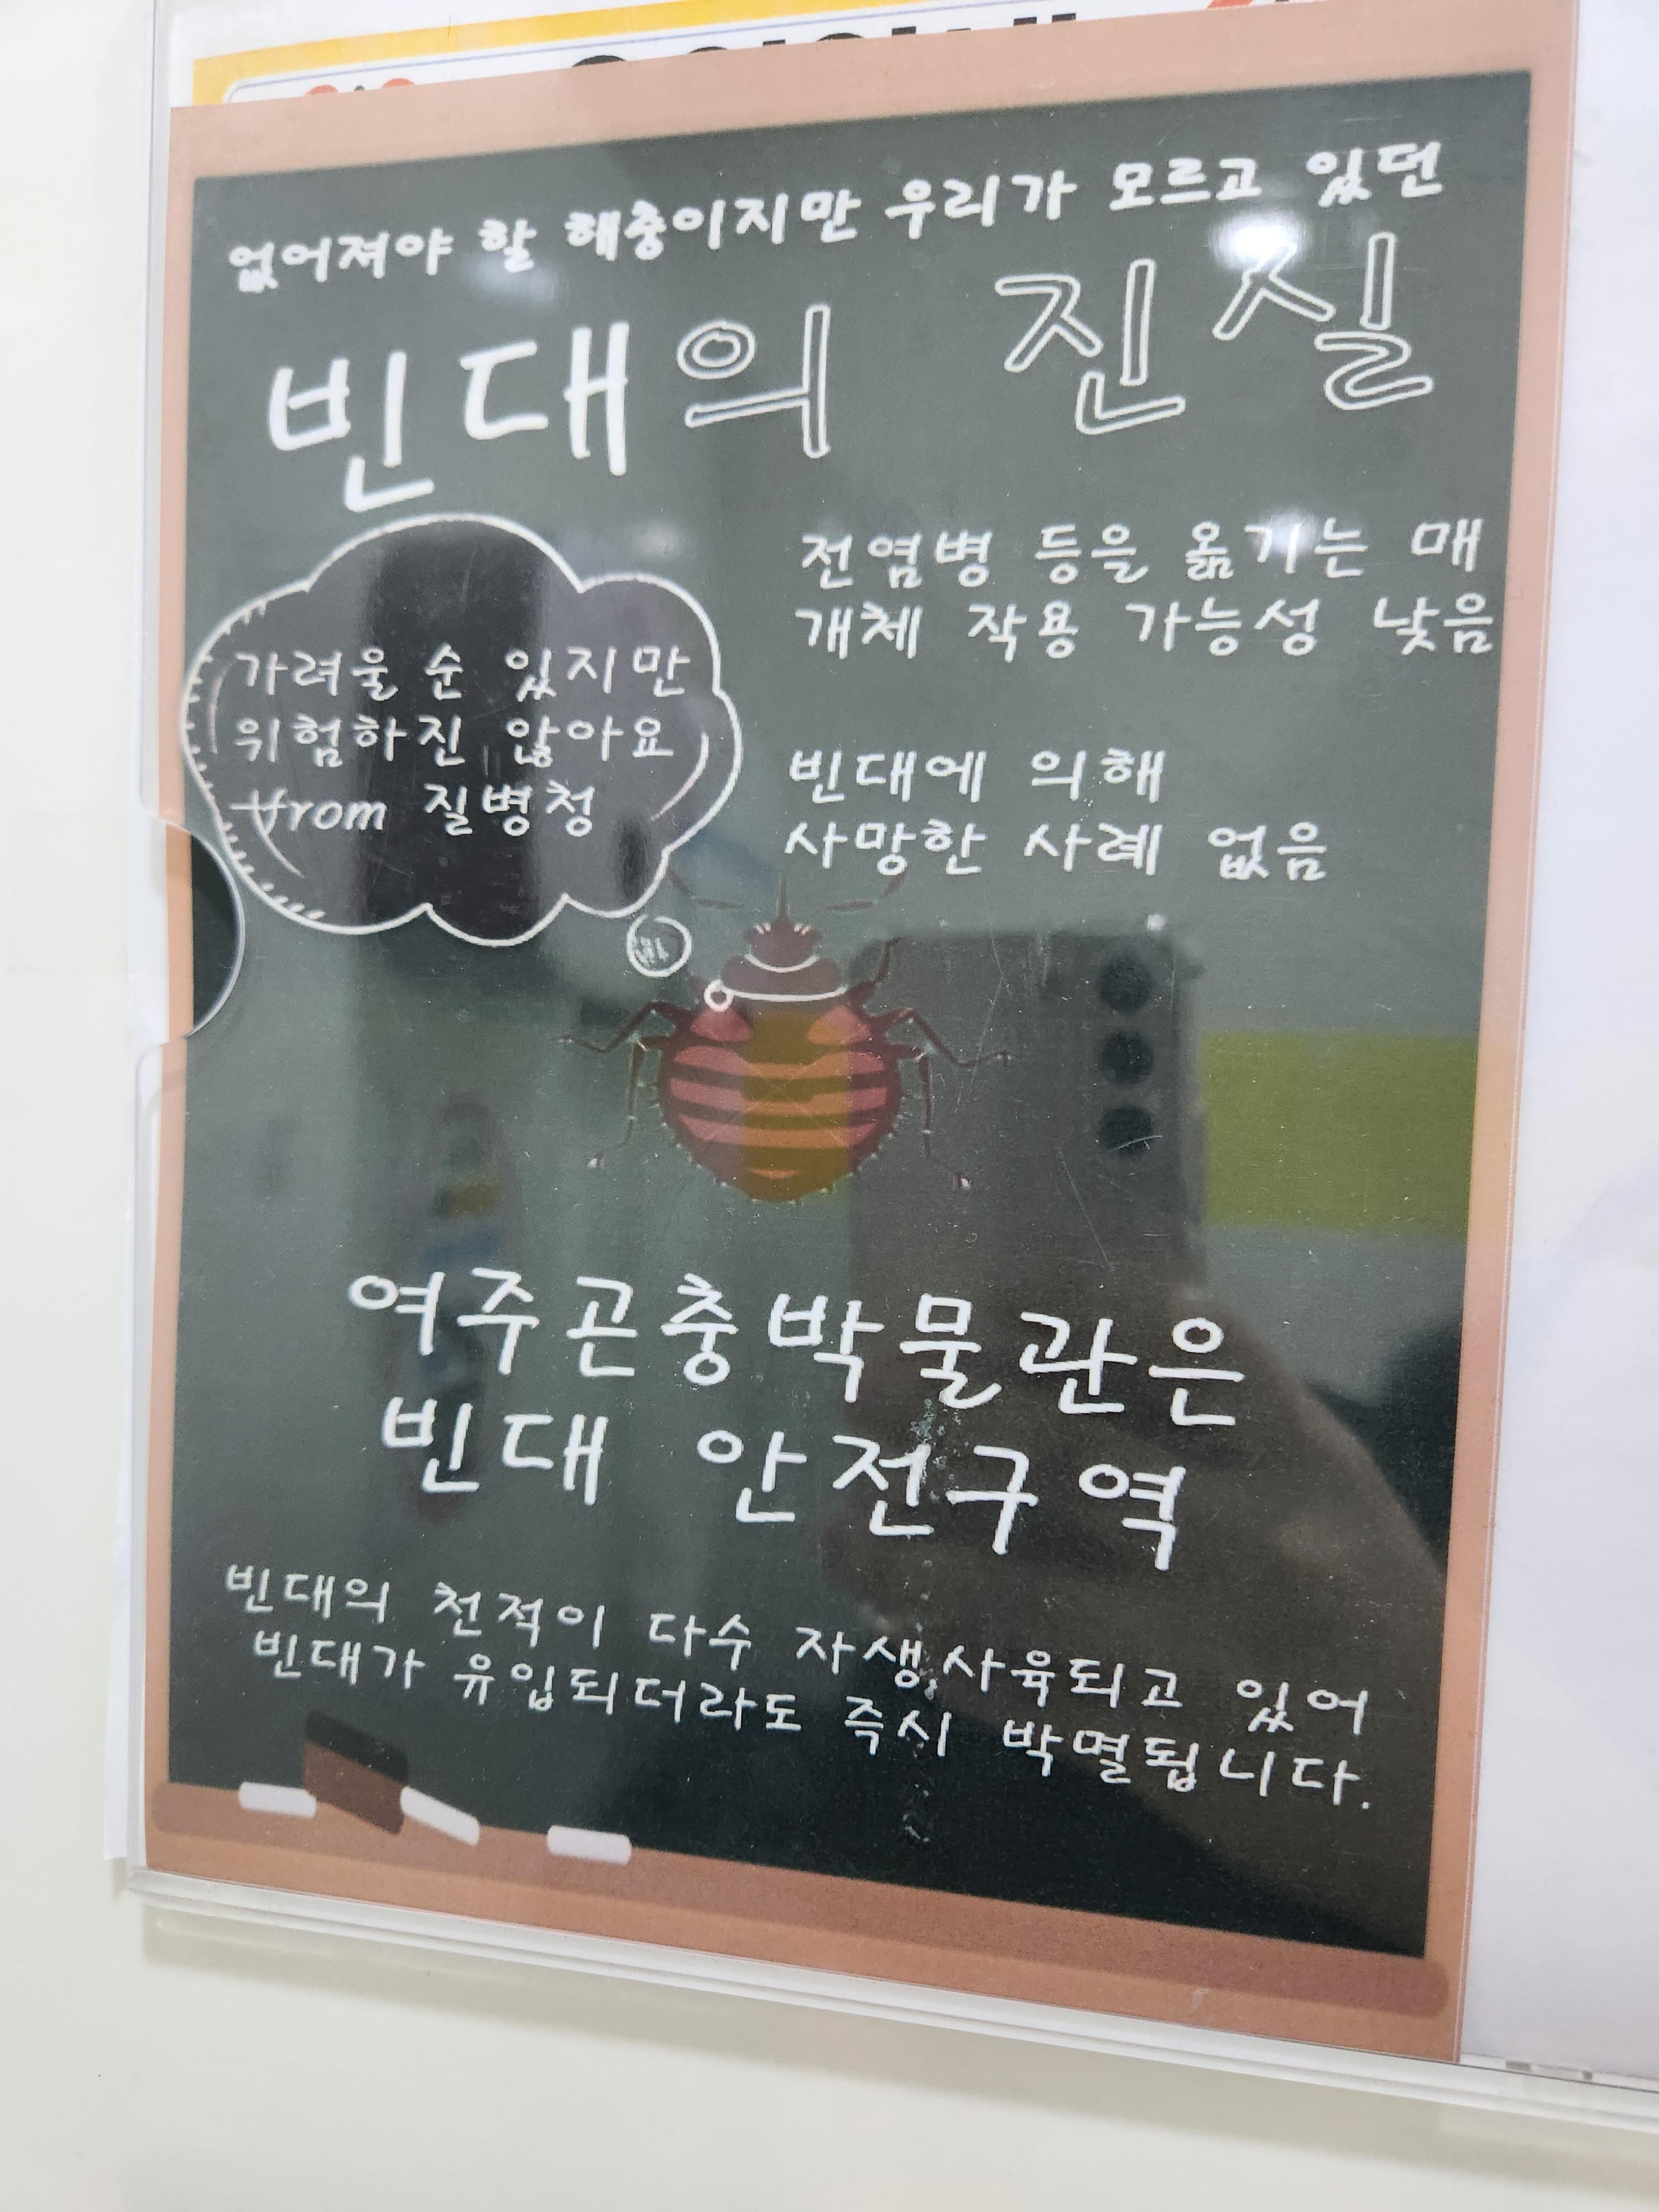 없어져야 할 해충이지만 우리가 모르고 있던
빈대의 진실
가려울 순 있지만
위험하진 않아요
from 질병청
전염병 등을 옮기는 매
개체 작용 가능성 낮음
빈대에 의해
사망한 사례 없음
여주곤충박물관은
빈대 안전구역
빈대의 천적이 다수 자생,사육되고 있어
빈대가 유입되더라도 즉시 박멸됩니다.